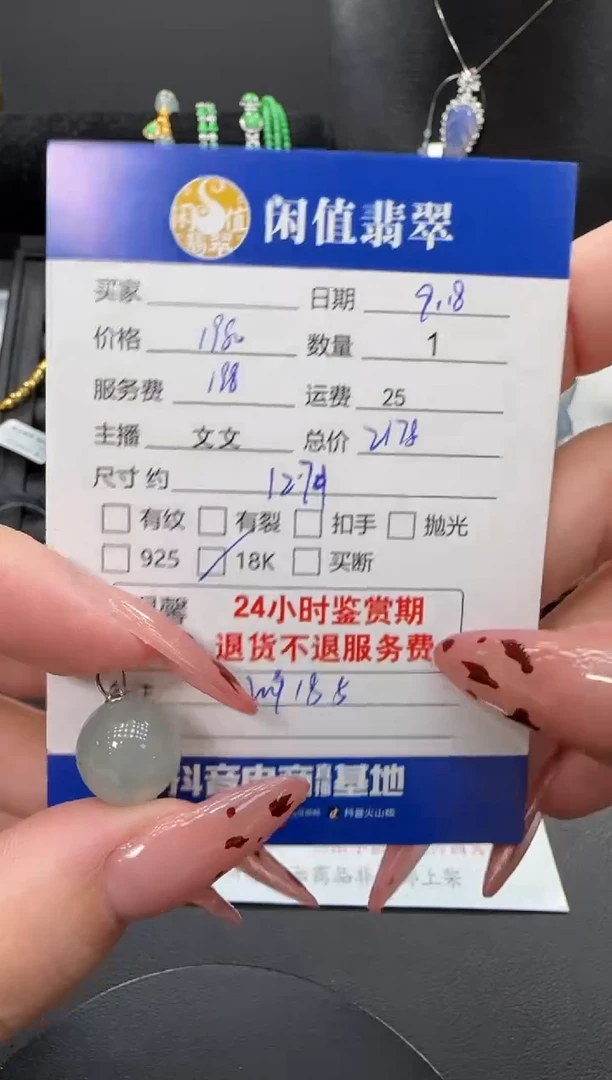 闲值翡翠
买家 日期 9.18
价格 1980 数量 1
服务费 198 运费 25
主播 文文 总价 2178
尺寸 约 12.7
有纹 有裂 扣手 抛光
925 18K 买断
馨 24小时鉴赏期
退货不退服务费
185
抖音电商 基地
抖音火山版
上架